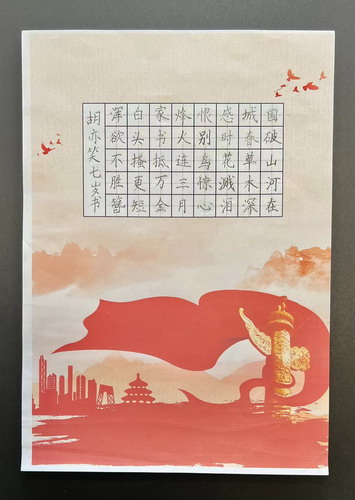 国破山河在
城春草木深
感时花溅泪
恨别鸟惊心
烽火连三月
家书抵万金
白头搔更短
浑欲不胜簪
胡亦笑七岁书